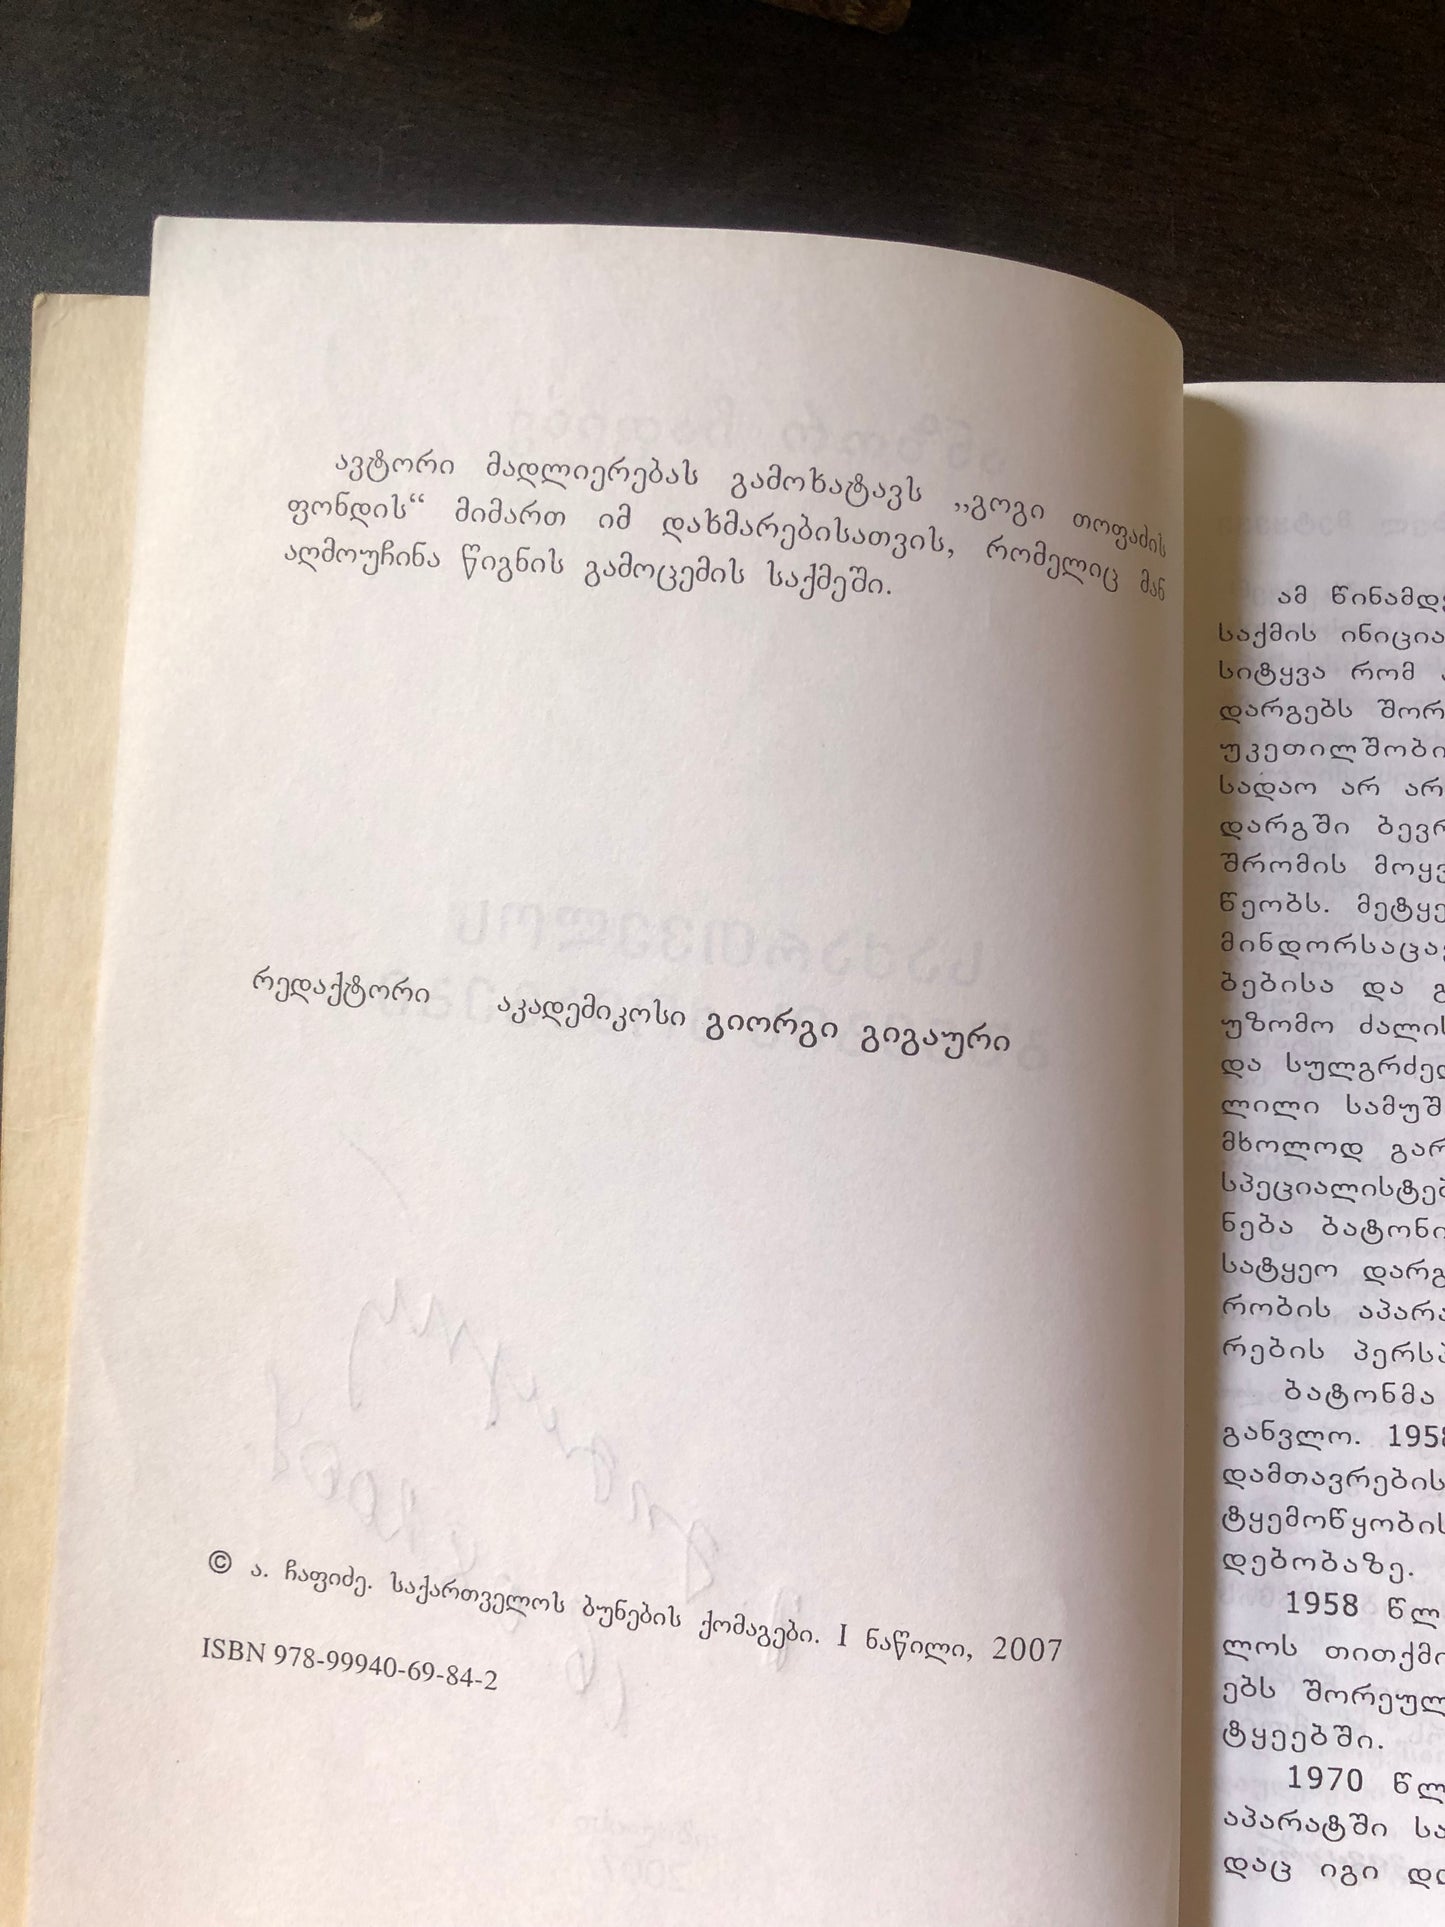 ავტორი მადლიერებას გამოხატავს ,,გოგი თოფაძის
ფონდის“ მიმართ იმ დახმარებისათვის, რომელიც მან
აღმოუჩინა წიგნის გამოცემის საქმეში.
რედაქტორი აკადემიკოსი გიორგი გიგაური
© ა. ჩაფიძე. საქართველოს ბუნების ქომაგები. I ნაწილი, 2007
ISBN 978-99940-69-84-2
ამ წინამდე
საქმის ინიცია
სიტყვა რომ
დარგებს შორ
უკეთილშობი
სადაო არ არ
დარგში ბევრ
შრომის მოყვ
წეობს. მეტყე
მინდორსაცავ
ბებისა და გ
უზომო ძალის
და სულგრძელ
ლილი სამუშ
მხოლოდ გარ
სპეციალისტებ
ნება ბატონი
სატყეო დარგ
რობის აპარა
რების პერსპ
ბატონმა
განვლო. 1958
დამთავრების
ტყემოწყობის
დებობაზე.
1958 წლ
ლოს თითქმი
ებს შორეულ
ტყეებში.
1970 წლ
აპარატში სა
დაც იგი დღ